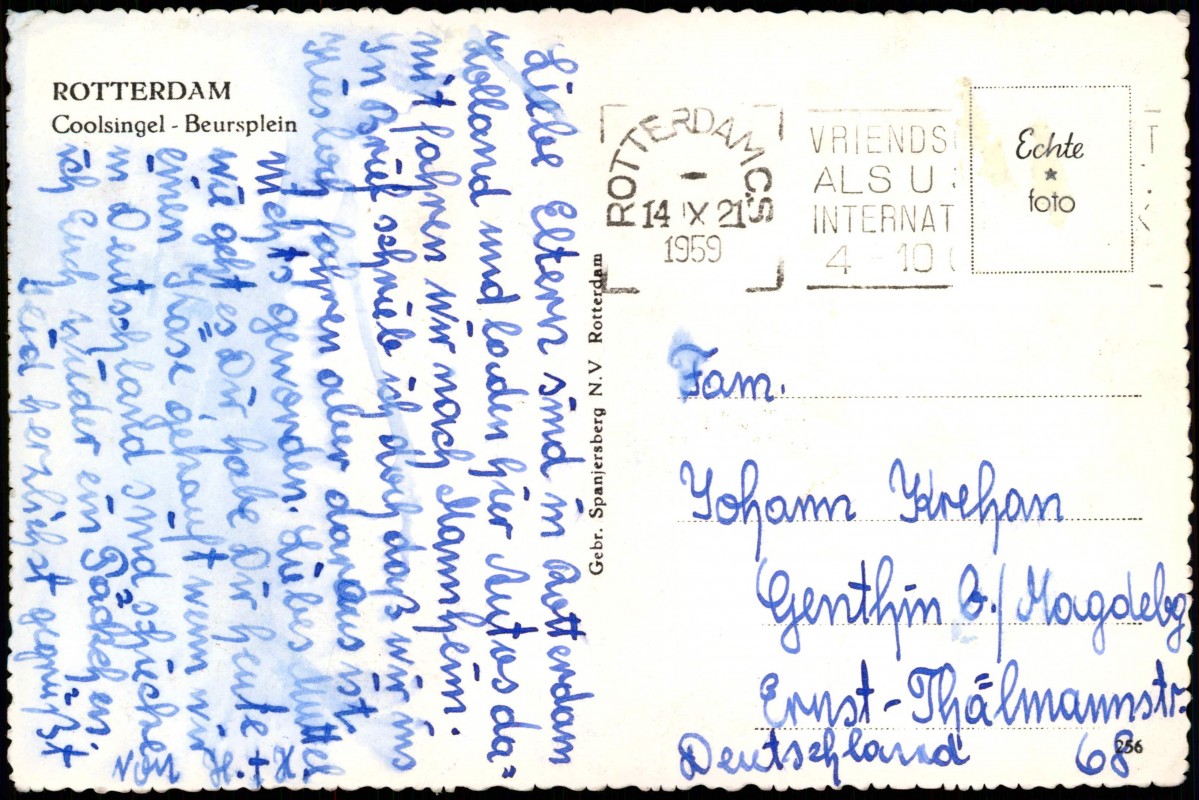 ROTTERDAM
Coolsingel - Beursplein
Liebe Eltern sind in Rotterdam
Holland und laden hier Autos da=
mit fahren wir nach Mannheim.
In Brief schrieb ich doch daß wir ins
Wiesloch fahren aber daraus ist
nichts geworden. Liebes Muttel
wie geht es Dir, habe Dir heute
einen Käse gekauft wenn wir
in Deutschland sind schicke
ich Euch wieder ein Päckchen.
Seid herzlichst gegrüßt
von H. + H.
Gebr. Spanjersberg N.V Rotterdam
ROTTERDAM C.S.
14 IX 21
1959
VRIENDS
ALS U
INTERNAT
4 - 10
Echte
foto
Fam.
Johann Krehan
Genthin b./Magdebg.
Ernst-Thälmannstr.
Deutschland 68
256